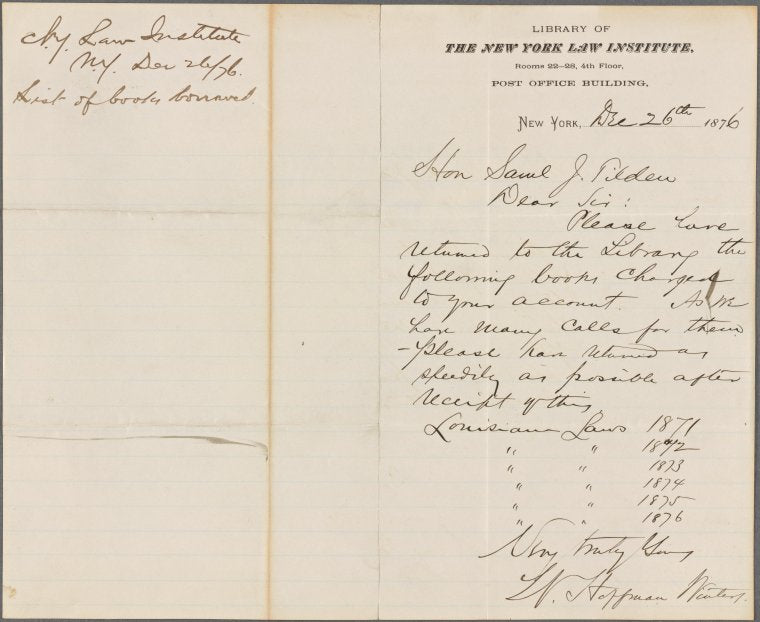 N.Y. Law Institute
N.Y. Dec 26/76.
List of books borrowed.
LIBRARY OF
THE NEW YORK LAW INSTITUTE,
Rooms 22–28, 4th Floor,
POST OFFICE BUILDING,
NEW YORK, Dec 26th 1876
Hon Saml J. Tilden
Dear Sir:
Please have
returned to the Library the
following books charged
to your account. As we
have many calls for them
- please have returned as
speedily as possible after
receipt of this
Louisiana Laws 1871
" " 1872
" " 1873
" " 1874
" " 1875
" " 1876
Very truly Yours
Hoffman Winters.